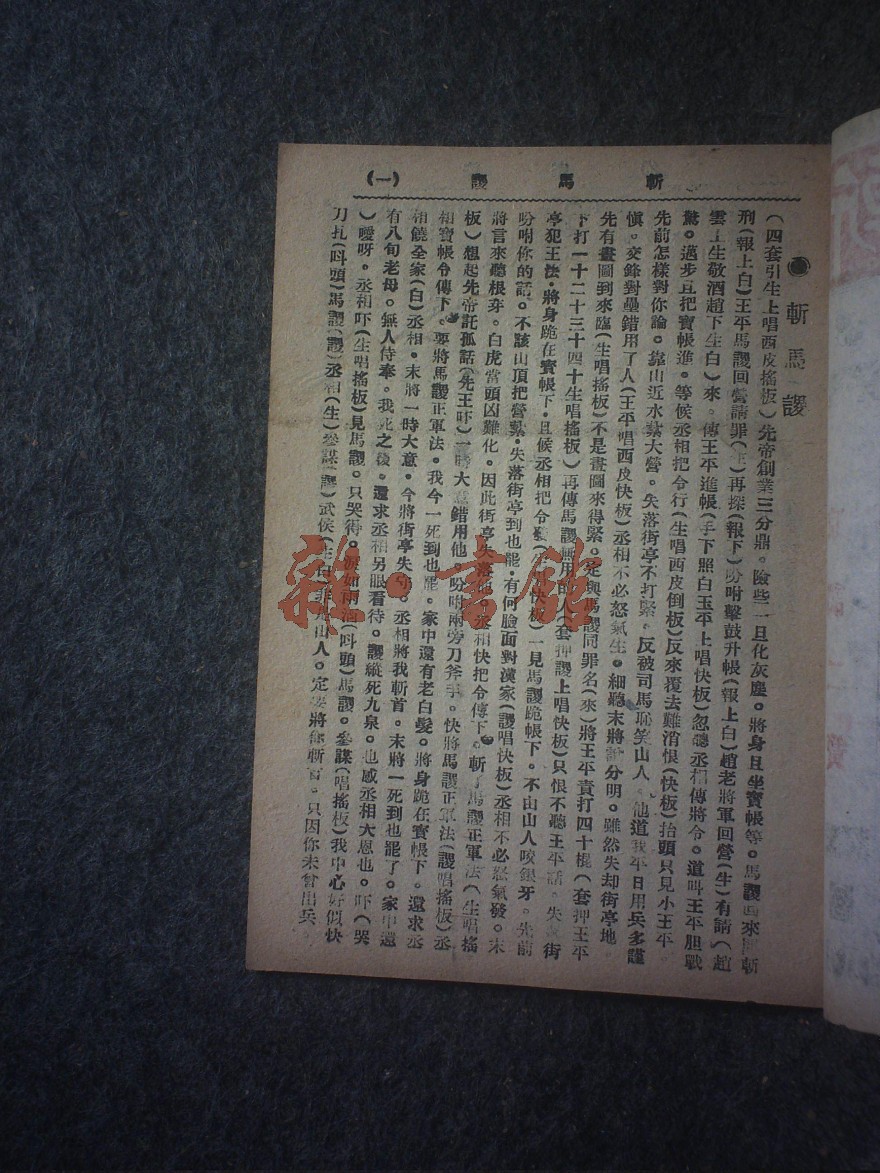 斬馬謖 (一)
斬馬謖
(四套引生上唱西皮搖板)先帝創業三分鼎。險些一旦化灰塵。將身且坐寶帳等。馬謖回來問斬
刑(報上白)王平馬謖回營請罪(生)再探(報下)吩咐擊鼓升帳(報上白)趙老將軍回營(生)有請(趙
雲上生敬酒趙下生白)來。傳王平進帳(手下照白王平上唱快板)忽聽丞相傳將令。道叫王平胆戰
驚。邁步且把寶帳進。等候丞相把令行(生唱西皮倒板)反來覆去難消恨(快板)抬頭只見小王平。
先前怎樣對你論。靠山近水紮大營。失落街亭不打緊。反被司馬恥笑山人。他道我平日用兵多謹
慎。交鋒對壘錯用了人(王平唱西皮快板)丞相不必怒氣生。細聽末將說分明。雖然失却街亭地。
先有畫圖到來臨(生唱搖板)不是畫圖來得緊。定與馬謖同罪名(來)將王平責打四十棍(套押王平
下打一十二十三十四十生唱搖板)再傳馬謖無用的人(套押謖上唱快板)只恨不聽王平話。失 街
亭犯王法。將身跪在寶帳下。且候丞相把令發(生唱快板)一見馬謖跪帳下。不由山人咬銀牙。先前
吩咐你的話。不該山頂把營紮。失落街亭到也罷。有何臉面對漢家(謖唱快板)丞相不必怒氣發。末
將言來聽根芽。白虎當頭凶難化。因此街亭失落他。丞相快把令傳下。斬了馬謖正軍法(生唱搖
板)想起先帝託孤話(先王吓)一時大意錯用他。吩咐兩旁刀斧手。快將馬謖正軍法(謖唱搖板)丞
相寶帳令傳下。要將馬謖正軍法。我今一死到也罷。家中還有老白髮。將身跪在寶帳下。還求丞
相饒全家(白)丞相。末將一時大意。今將街亭失守。丞相將我斬首。末將一死到也罷了。家中還
有八旬老母。無人侍奉。我死之後。還求丞相另眼看待。謖縱死九泉。也感丞相大恩也。吓(哭
)噯呀。丞相吓(生唱搖板)見馬謖。只哭得。淚如雨洒(呌頭)馬謖。參謀(唱搖板)我中心好似快
刀扎(呌頭)馬謖(謖)丞相(生)參謀(謖)武侯(生白)非是山人。定要將你斬首。只因你未曾出兵